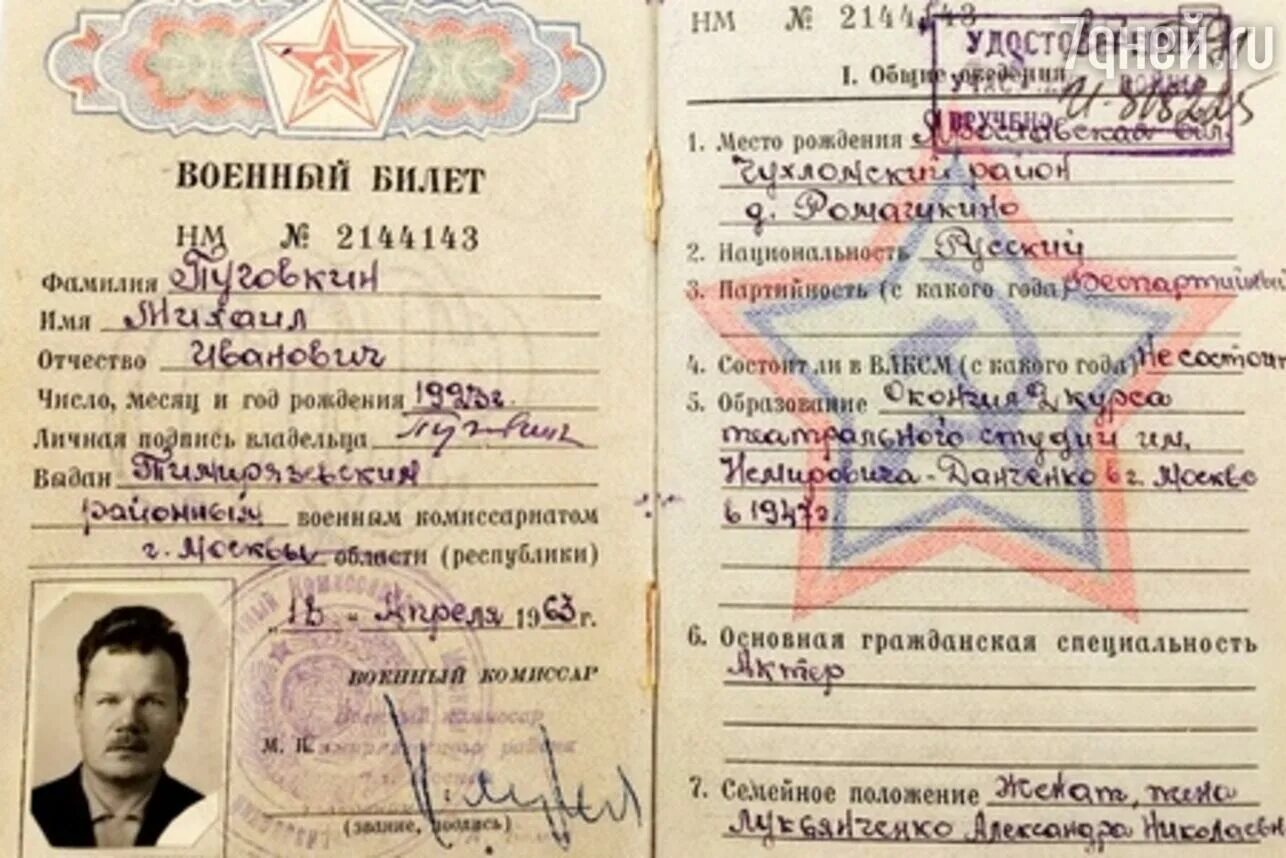 ВОЕННЫЙ БИЛЕТ
НМ № 2144143
Фамилия Пуговкин
Имя Михаил
Отчество Иванович
Число, месяц и год рождения 1923г.
Личная подпись владельца
Выдан Тимирязевским
районным военным комиссариатом
г. Москвы области (республики)
"12" Апреля 1963 г.
ВОЕННЫЙ КОМИССАР
Военный комиссар
М. П.
района
(звание, подпись)
7дней.ru
НМ № 2144143
УДОСТОВЕРЕНИЕ
ВОЙНЫ
ВРУЧЕНО
I. Общие сведения
1. Место рождения Ярославская обл.
Чухломский район
д. Ромачукино
2. Национальность Русский
3. Партийность (с какого года) Беспартийный
4. Состоит ли в ВЛКСМ (с какого года) Не состоит
5. Образование Окончил 2 курса
театрального студии им.
Немировича-Данченко в г. Москве
в 1947г.
6. Основная гражданская специальность
Актер
7. Семейное положение Женат, жена
Лукьянченко Александра Николаевн